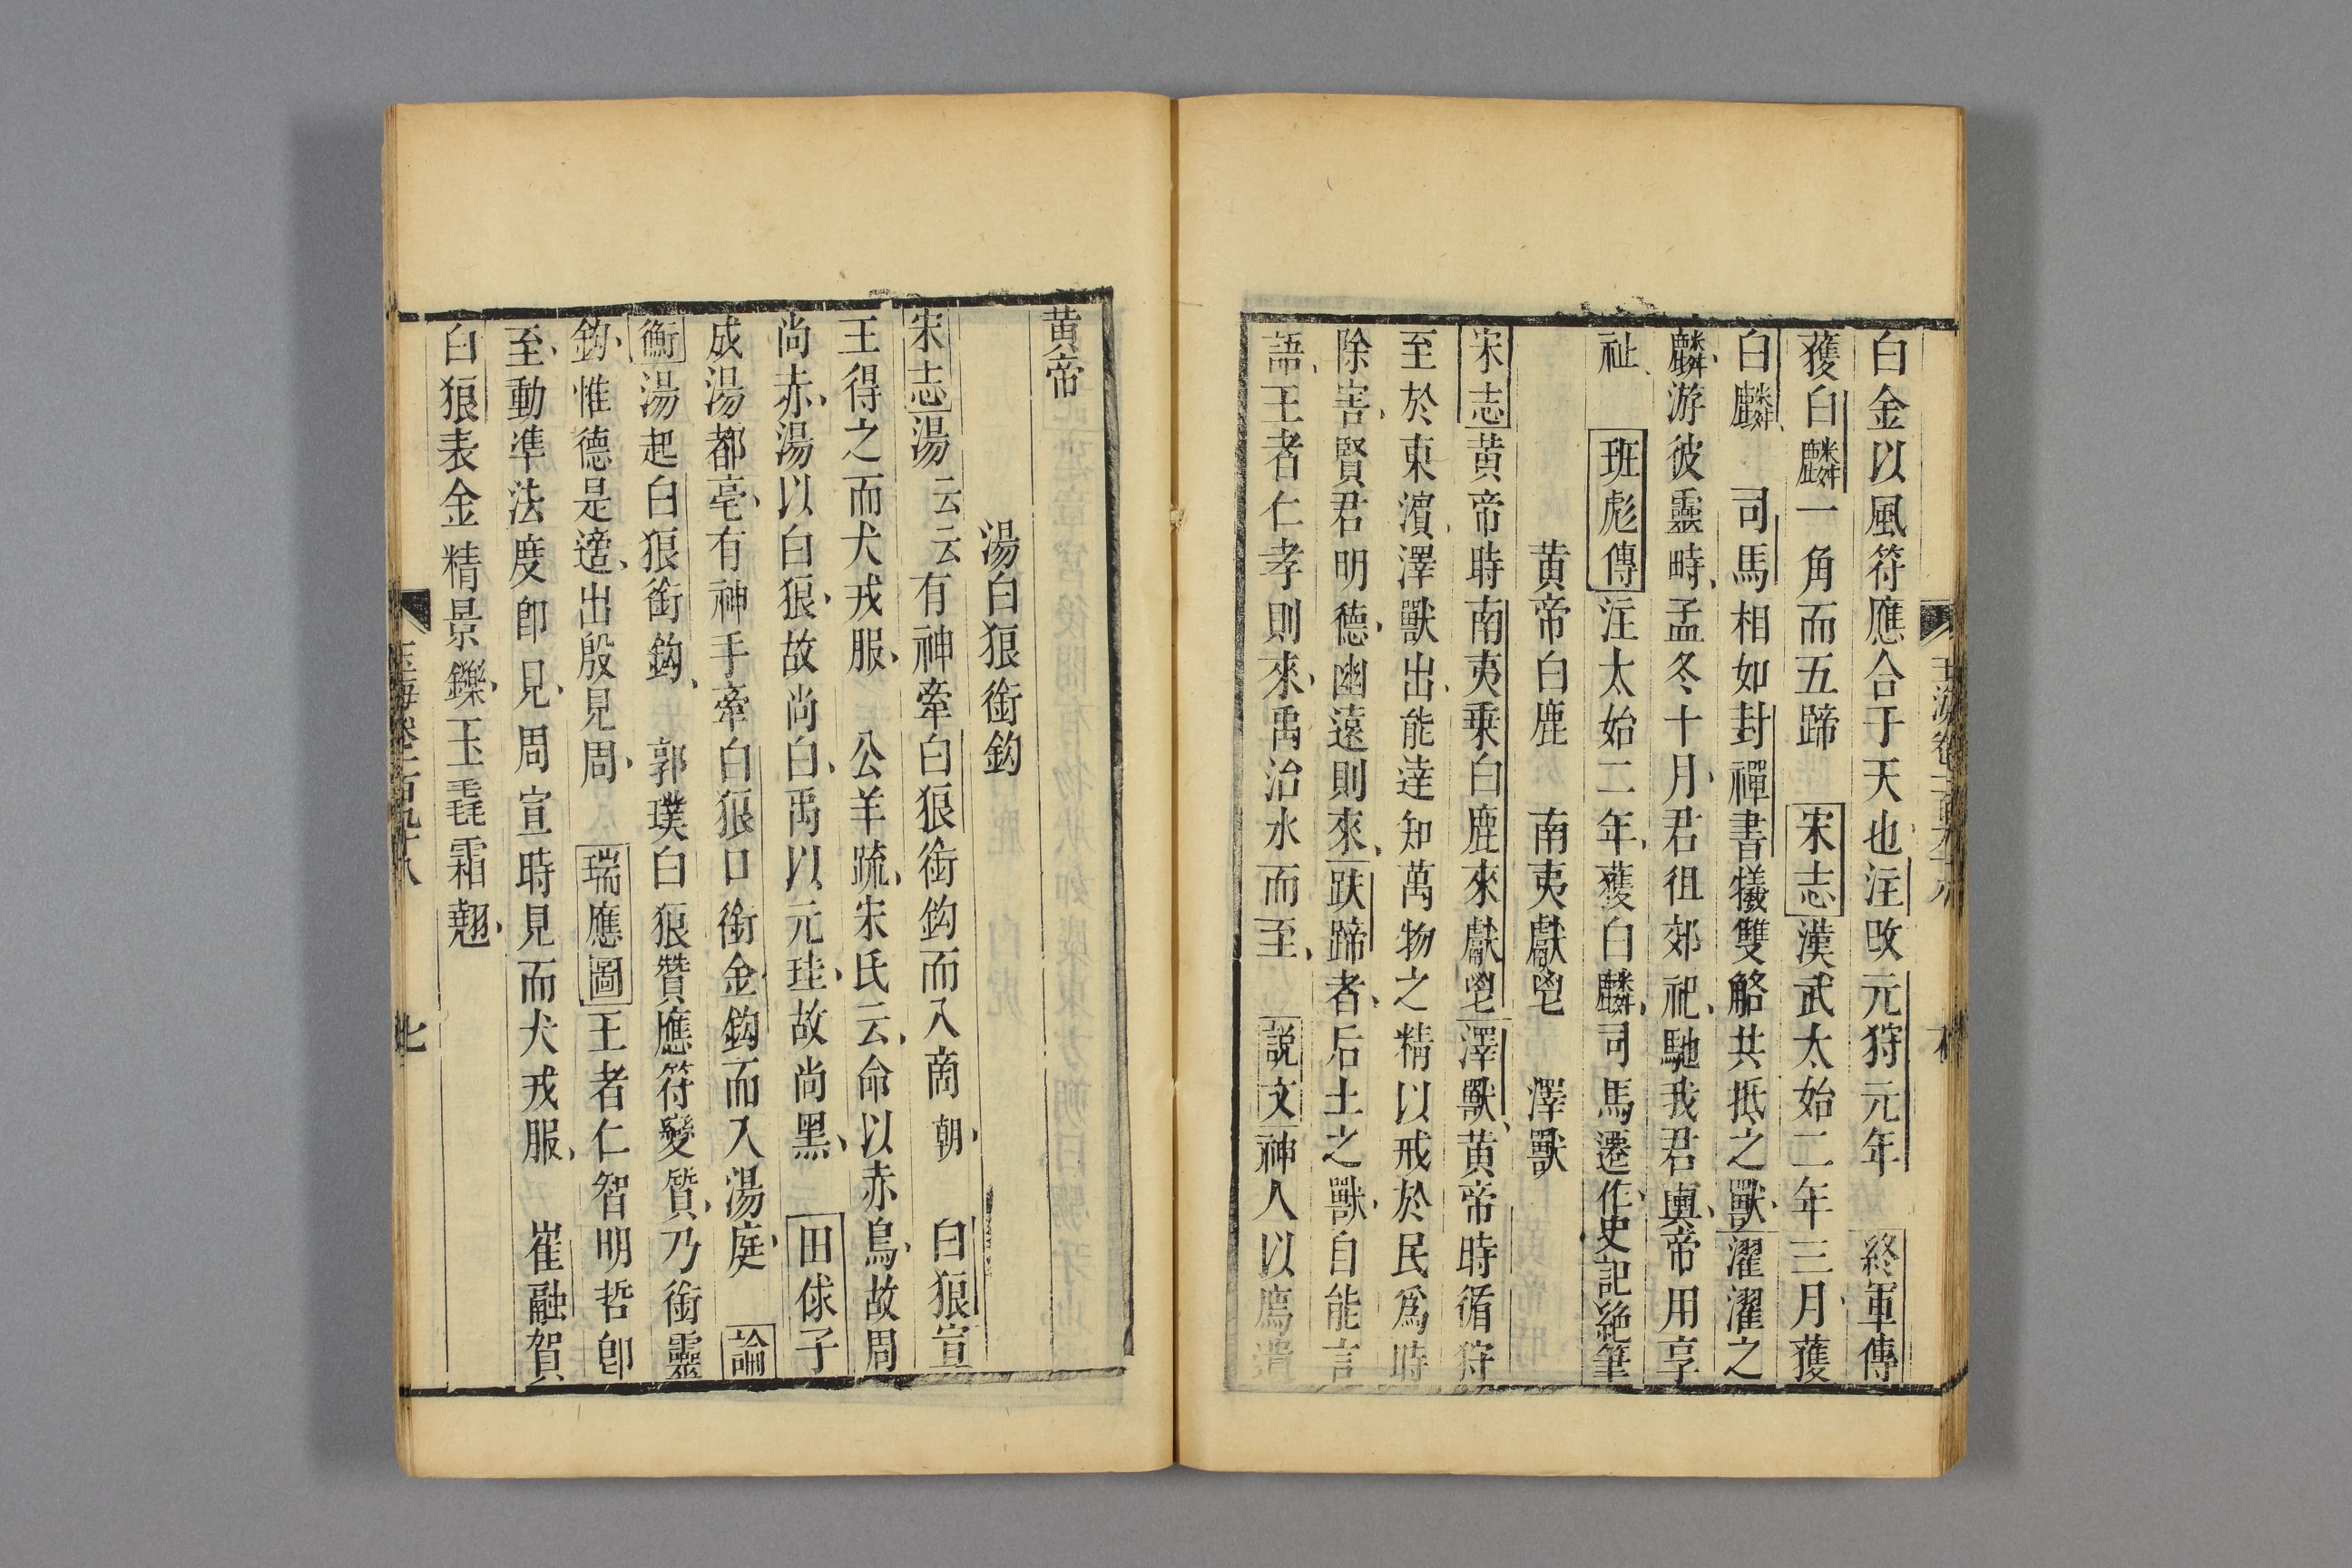 白金以風符應合于天也注攺元狩元年 終軍傳
獲白麟一角而五蹄 宋志漢武太始二年三月獲
白麟 司馬相如封禪書犧雙觡共抵之獸濯濯之
麟游彼靈畤孟冬十月君徂郊祀馳我君輿帝用享
祉 班彪傳注太始二年獲白麟司馬遷作史記絶筆
黄帝白鹿 南夷獻鬯 澤獸
宋志黄帝時南夷乗白鹿來獻鬯澤獸黄帝時循狩
至於東濱澤獸出能逹知萬物之精以戒於民爲時
除害賢君明德幽遠則來趺蹄者后土之獸自能言
語王者仁孝則來禹治水而至 説文神人以廌遺
黄帝
湯白狼銜鈎
宋志湯云云有神牽白狼銜鈎而入商朝 白狼宣
王得之而犬戎服 公羊疏宋氏云命以赤烏故周
尚赤湯以白狼故尚白禹以元珪故尚黑 田俅子
成湯都亳有神手牽白狼口銜金鈎而入湯庭 論
衡湯起白狼銜鈎 郭璞白狼贊應符變質乃銜靈
鈎惟德是適出殷見周 瑞應圖王者仁智明哲卽
至動凖法度卽見周宣時見而犬戎服 崔融賀
白狼表金精景鑠玉毳霜翹
玉海卷一百九十八
七